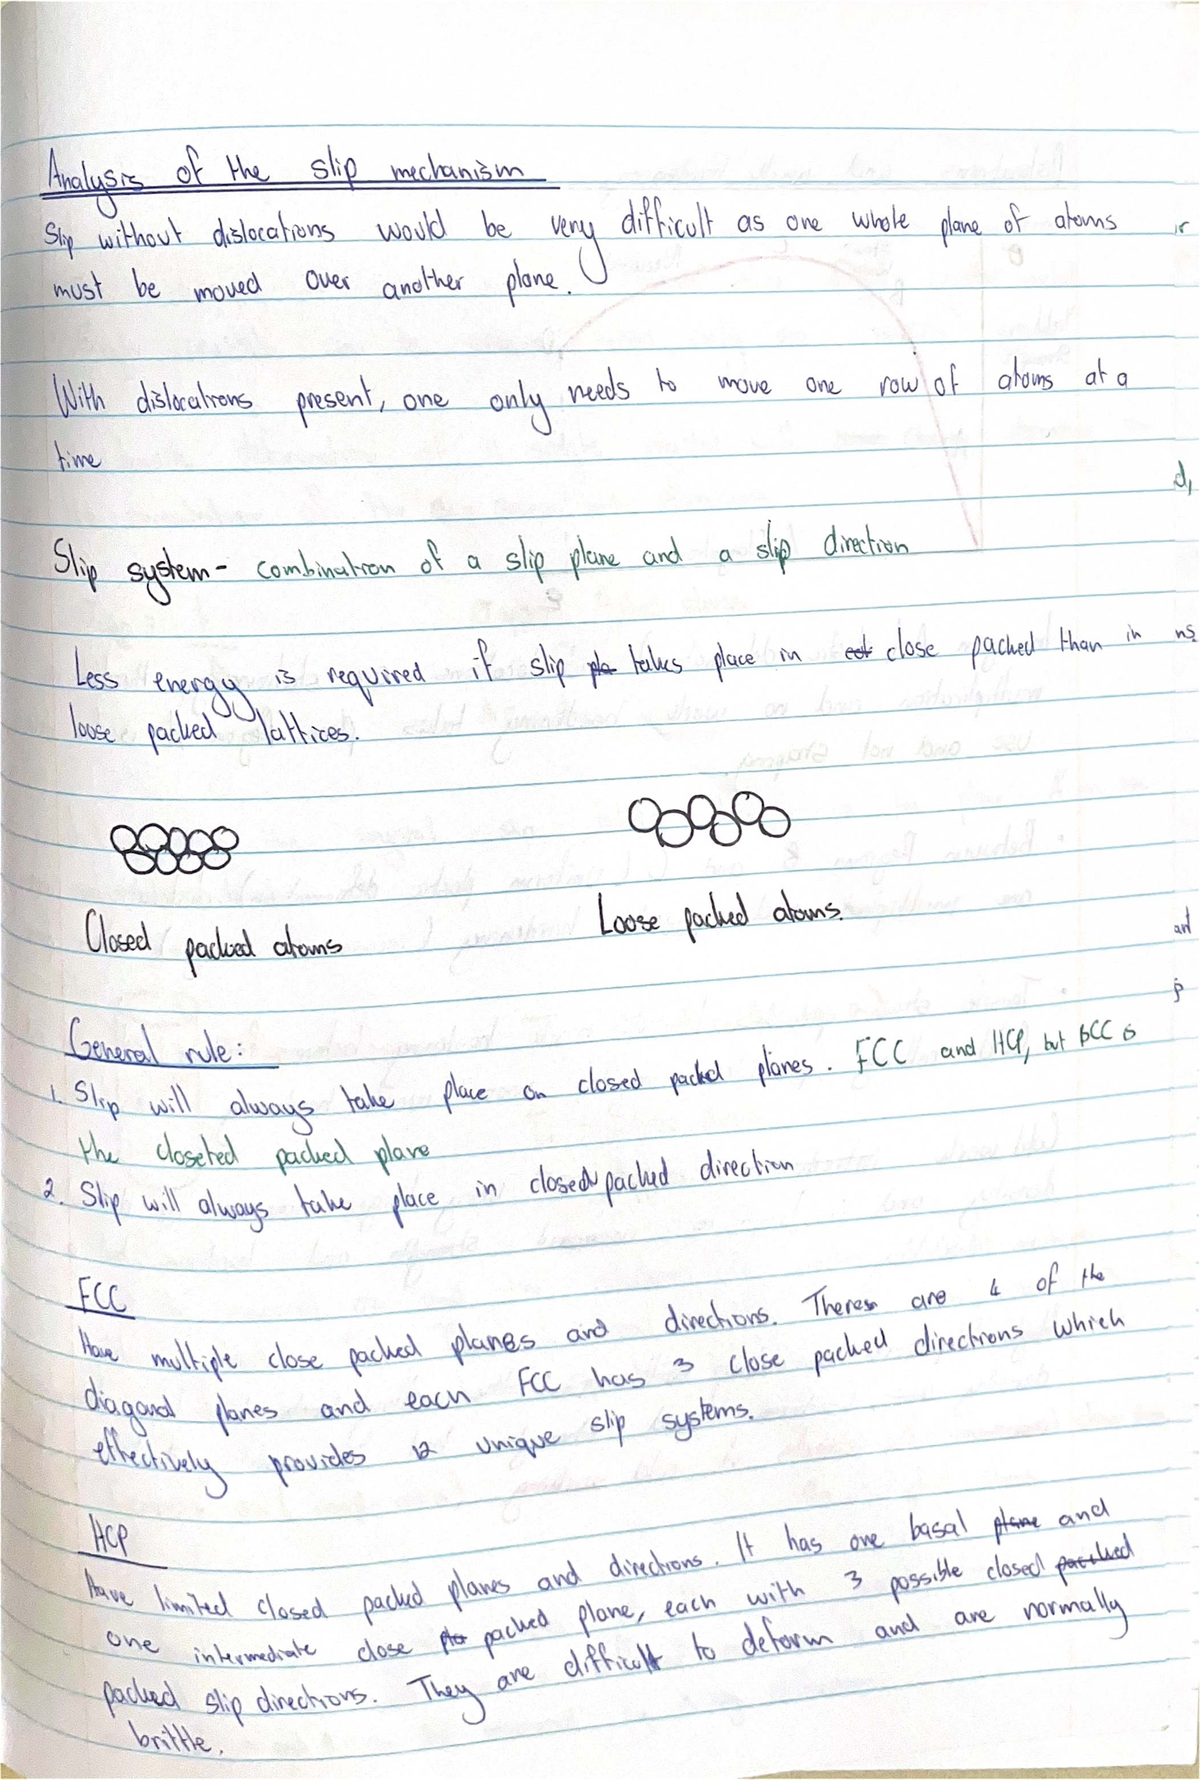 Analysis of the slip mechanism
Slip without dislocations would be very difficult as one whole plane of atoms
must be moved over another plane.
With dislocations present, one only needs to move one row of atoms at a
time
Slip system- combination of a slip plane and a slip direction
Less energy is required if slip takes place in close packed than in
loose packed lattices.
Closed packed atoms
Loose packed atoms.
General rule:
1. Slip will always take place on closed packed planes. FCC and HCP, but BCC is
the closeted packed plane
2. Slip will always take place in closed packed direction
FCC
Have multiple close packed planes and directions. There are 4 of the
diagonal planes and each FCC has 3 close packed directions which
effectively provides 12 unique slip systems.
HCP
Have limited closed packed planes and directions. It has one basal plane and
one intermediate close packed plane, each with 3 possible closed packed
packed slip directions. They are difficult to deform and are normally
brittle.